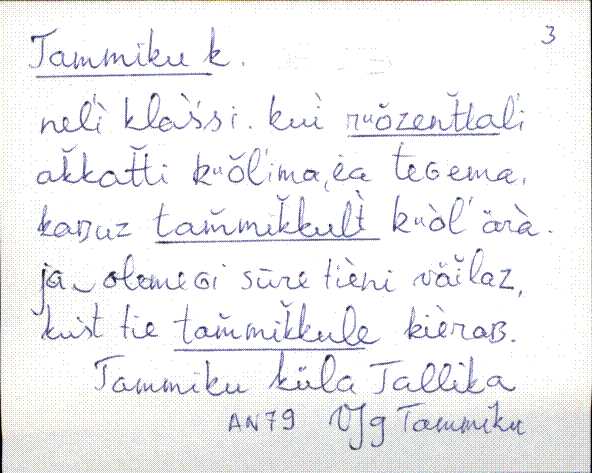 3
Tammiku k.
nel'i klàs'si. kui ruŏzent̆kal'i
ak̆kat̆ti kuŏl'ima,èa teGema.
kaBuz tam̆mik̆kult̀ kuòl' ärà.
ja olemeGi sūre tièni väĭlaz,
kust tie tam̆mik̆kule kièraB.
Tammiku küla Tallika
AN79 VJg Tammiku